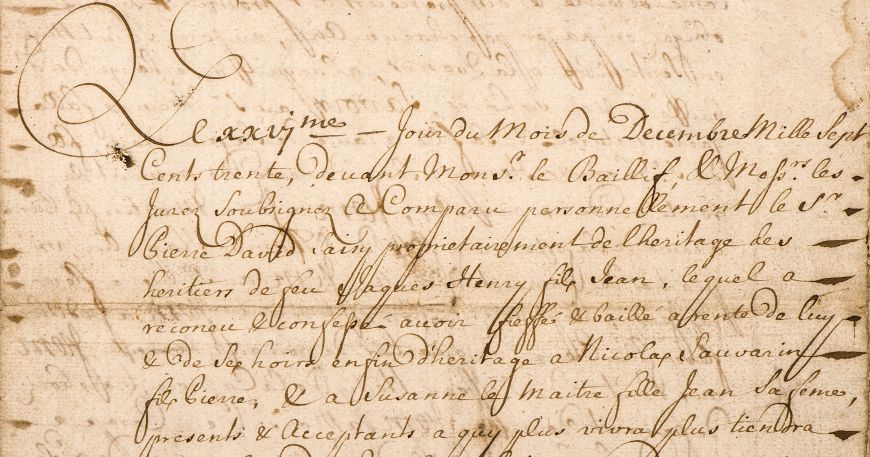 Le xxvj me – Jour du Mois de Decembre Mille Sept
Cents trente, devant Mons.r le Baillif, & Mess.rs les
Jurez Soubsignez Est Comparu personnellement le S.r
Pierre David proprietairement de l'heritage des
heritiers de feu Jaques Henry fils Jean, lequel a
reconeu & confessé avoir fieffé & baillé a rente de luy
& de ses hoirs enfin d'heritage a Nicolas Sauvarin
fils Pierre, & a Susanne le Maitre fille Jean sa feme,
presents & Acceptants a quy plus vivra plus tiendra